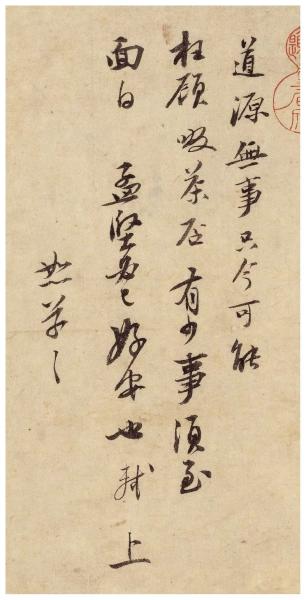 道源無事只今可能
枉顧啜茶否有少事須至
面白 孟堅必已好安也 軾上
恕草々